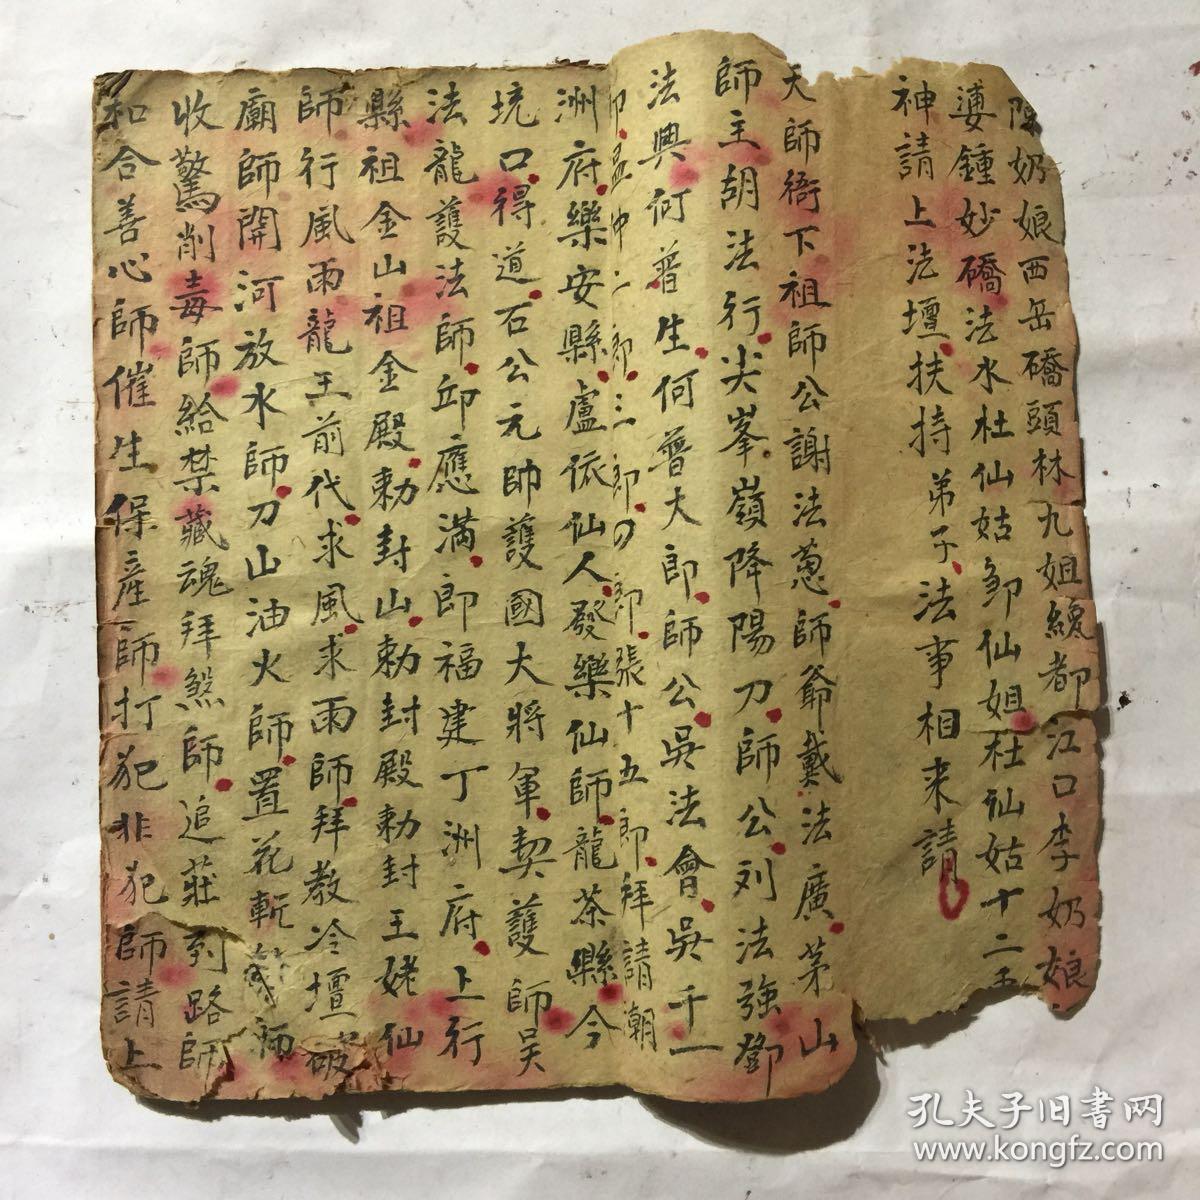 陳奶娘西岳礄頭林九姐纔都江口李奶娘
婆鍾妙礄法水杜仙姑邹仙姐杜仙姑十二
神請上法壇扶持弟子法事相来請
天師衙下祖師公謝法蔥師爺戴法廣茅山
師主胡法行尖峯嶺降陽刀師公刘法強鄧
法興何普生何普大郎師公吳法會吳千一
二郎三郎四郎張十五郎拜請潮
洲府樂安縣盧依仙人發樂仙師龍茶縣今
坑口得道石公元帥護國大將軍契護師吴
法龍護法師邱應满郎福建丁洲府上行
縣祖金山祖金殿勅封山勅封殿勅封王姥仙
師行風雨龍王前代求風求雨師拜教冷壇破
廟師開河放水師刀山油火師置花斬 師
收驚削毒師給禁藏魂拜煞師追莊到路師
和合善心師催生保產師打犯非犯師請上
孔夫子旧書网
www.kongfz.com